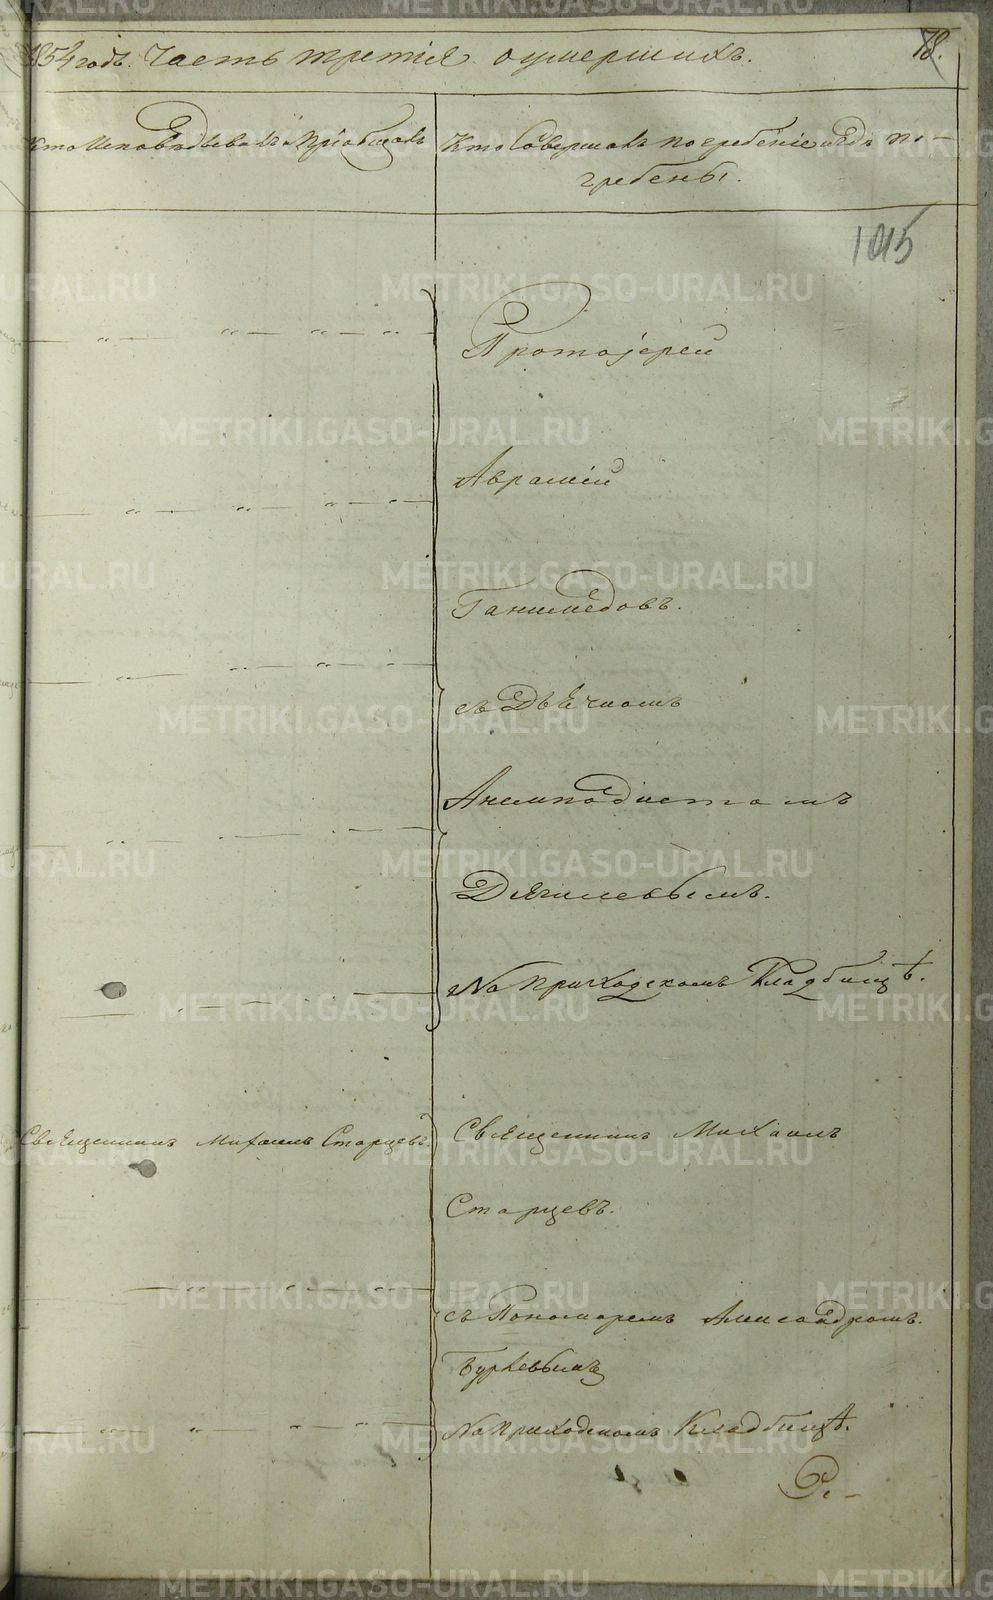 1854 годъ. Часть третія оумершихъ.
78.
Кто Исповѣдывалъ и Пріобщалъ
Кто Совершалъ погребеніе и гдѣ по-
гребены.
1015
Протоіерей
Аврамій
Ганимедовъ.
съ Дьячкомъ
Анемподистомъ
Дягилевымъ.
На приходскомъ Кладбищѣ.
Священникъ Михаилъ Старцевъ.
Священникъ Михаилъ
Старцевъ.
съ Пономаремъ Александромъ
На приходскомъ Кладбищѣ.
METRIKI.GASO-URAL.RU